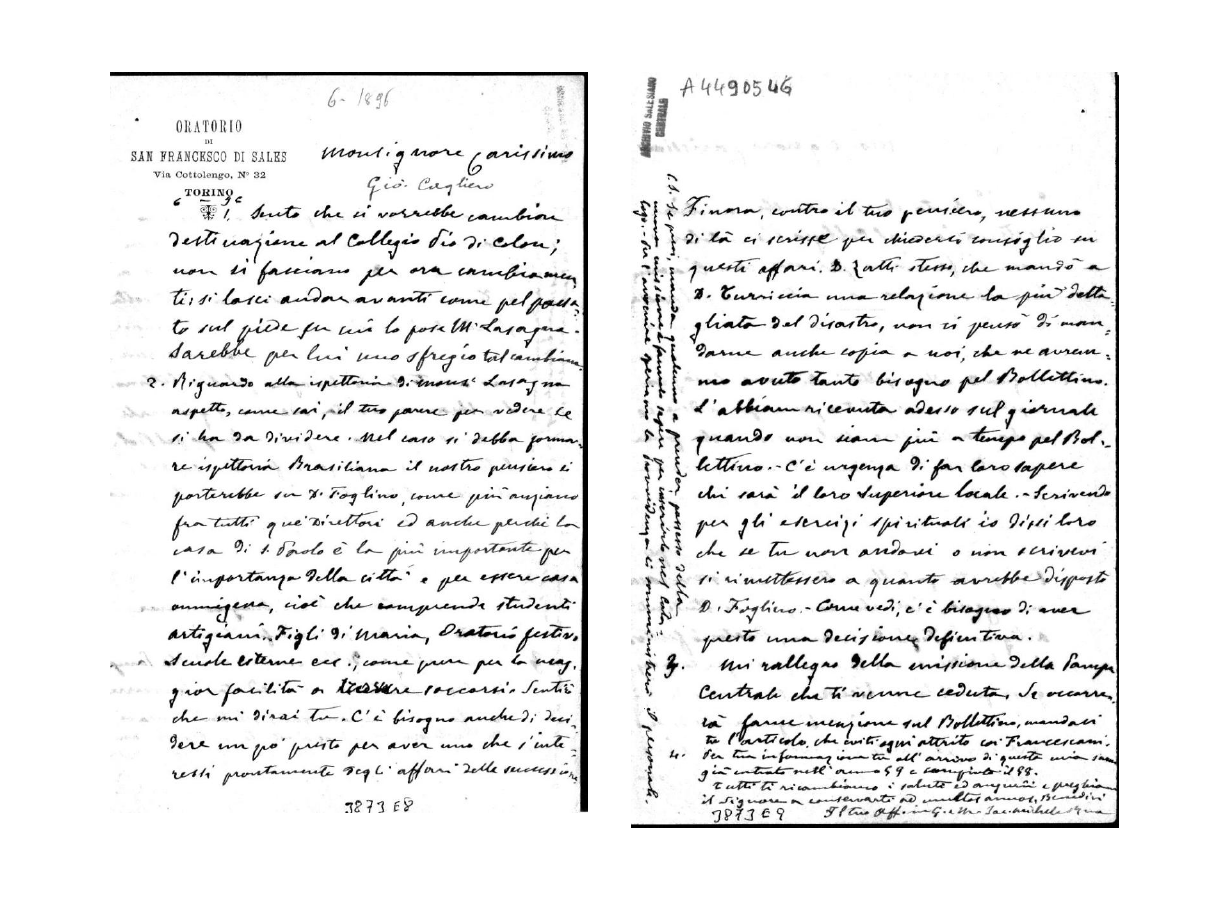 6 - 1896
ORATORIO
DI
SAN FRANCESCO DI SALES
Via Cottolengo, N° 32
TORINO
Monsignore Carissimo
Gio. Cagliero
1. Sento che si vorrebbe cambiar
destinazione al Collegio Pio di Colon;
non si facciano per ora cambiamen
ti; si lasci andar avanti come pel passa-
to sul piede su cui lo pose Mr Lasagna.
Sarebbe per lui uno sfregio tal cambiam
2. Riguardo alla ispettoria di Monsr Lasagna
aspetto, come sai, il tuo parere per vedere se
si ha da dividere. Nel caso si debba forma-
re ispettoria Brasiliana il nostro pensiero si
porterebbe su D. Foglino, come più anziano
fra tutti que' Direttori ed anche perchè la
casa di S. Paolo è la più importante per
l'importanza della città e per essere casa
omnigena, cioè che comprende studenti
artigiani, Figli di Maria, Oratorio festivo
Scuole esterne ecc.; come pure per la mag-
gior facilità a soccorsi. Sentirò
che mi dirai tu. C'è bisogno anche di deci-
dere un po' presto per aver uno che s'inte-
ressi prontamente degli affari delle successioni
3873 E8
A4490546
ARCHIVIO SALESIANO
CENTRALE
Finora, contro il tuo pensiero, nessuno
di là ci scrisse per chiederci consiglio su
questi affari. D. Zatti stesso, che mandò a
D. Turriccia una relazione la più detta-
gliata del disastro, non si pensò di man-
darne anche copia a noi, che ne avrem-
mo avuto tanto bisogno pel Bollettino.
L'abbiam ricevuta adesso sul giornale
quando non siam più a tempo pel Bol-
lettino. - C'è urgenza di far loro sapere
chi sarà il loro Superiore locale. - Scrivendo
per gli esercizi spirituali io dissi loro
che se tu non andavi o non scrivevi
si rimettessero a quanto avrebbe disposto
D. Foglino. - Come vedi, c'è bisogno di aver
presto una decisione definitiva.
3. Mi rallegro della missione della Pampa
Centrale che ti venne ceduta. Se occorre-
rà farne menzione sul Bollettino, mandaci
tu l'articolo, che eviti ogni attrito coi Francescani.
4. Per tua informazione tu all'arrivo di questa mia sarai
già entrato nell'anno 59 e compiuto il 58.
Tutti ti ricambiamo i saluti ed augurii e preghiamo
il Signore a conservarti ad multos annos. Benedici
Il tuo Aff. in G. e M. Sac. Michele Rua
3873 E9
P.S. Se puoi, manda qualcuno a prender possesso della
nuova missione e faccelo sapere per inserirlo nel Cata-
logo. - Per l'avvenire speriamo la Provvidenza ci somministrerà il personale.